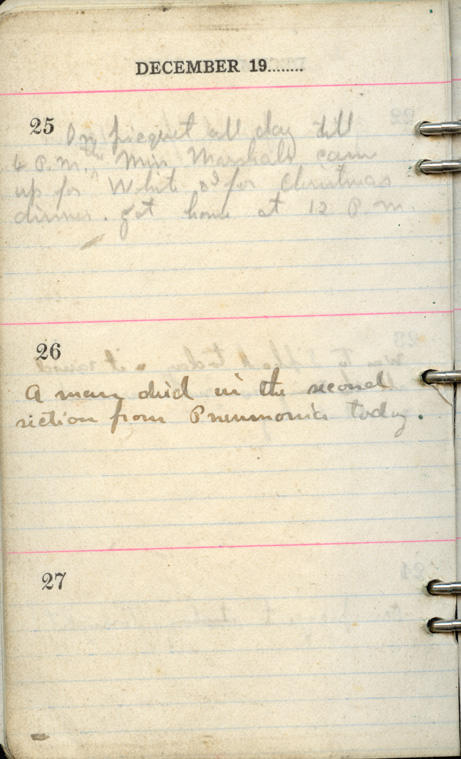 DECEMBER 19........
25 On picquet all day till
6 P.M. then Miss Marshall cam
up for White & I for Christmas
dinner. got home at 12 P.M.
26
A man died in the second
section from Pneumonia today.
27